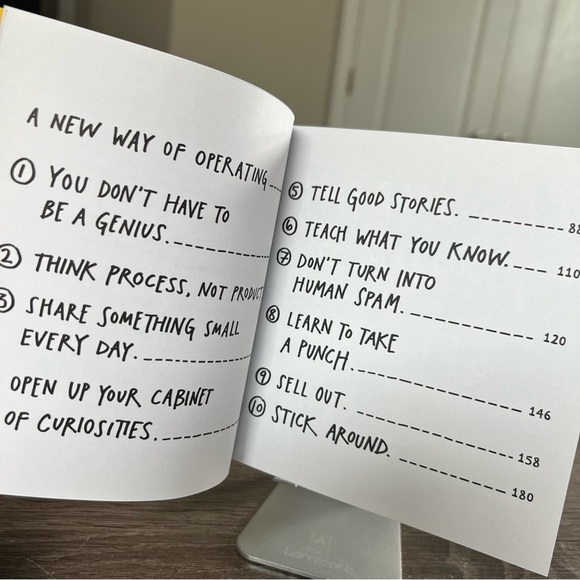 A NEW WAY OF OPERATING
1 YOU DON'T HAVE TO
BE A GENIUS.
2 THINK PROCESS, NOT PRODUCT
3 SHARE SOMETHING SMALL
EVERY DAY.
OPEN UP YOUR CABINET
OF CURIOSITIES.
5 TELL GOOD STORIES. 88
6 TEACH WHAT YOU KNOW. 110
7 DON'T TURN INTO
HUMAN SPAM. 120
8 LEARN TO TAKE
A PUNCH. 146
9 SELL OUT. 158
10 STICK AROUND. 180